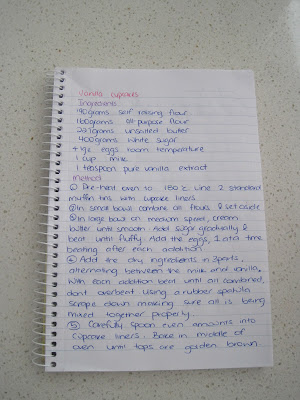 Vanilla cupcakes
Ingredients
190grams self raising flour
160grams all-purpose flour
227grams unsalted butter
400grams white sugar
eggs room temperature
1 cup milk
1 teaspoon pure vanilla extract
Method
① Pre-heat oven to 180°c. Line 2 standard
muffin tins with cupcake liners
② In small bowl combine all flours & set aside
③ In large bowl on medium speed, cream
butter until smooth. Add sugar gradually &
beat until fluffy. Add the eggs, 1 at a time
beating after each addition
④ Add the dry ingredients in 3 parts,
alternating between the milk and vanilla.
With each addition beat until all combined,
dont overbeat. Using a rubber spatula,
scrape down making sure all is being
mixed together properly.
⑤ Carefully spoon even amounts into
cupcake liners. Bake in middle of
oven until tops are golden brown.